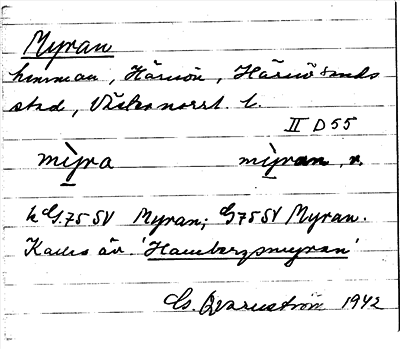 Myran
hemman, Härnön, Härnösands
stad, Västernorrl. l.
II D 55
mỳra mỳran, r.
k G.75 SV Myran; G75 SV Myran.
Kallas äv. 'Hambergsmyran'
Cs. Qvarnström 1942